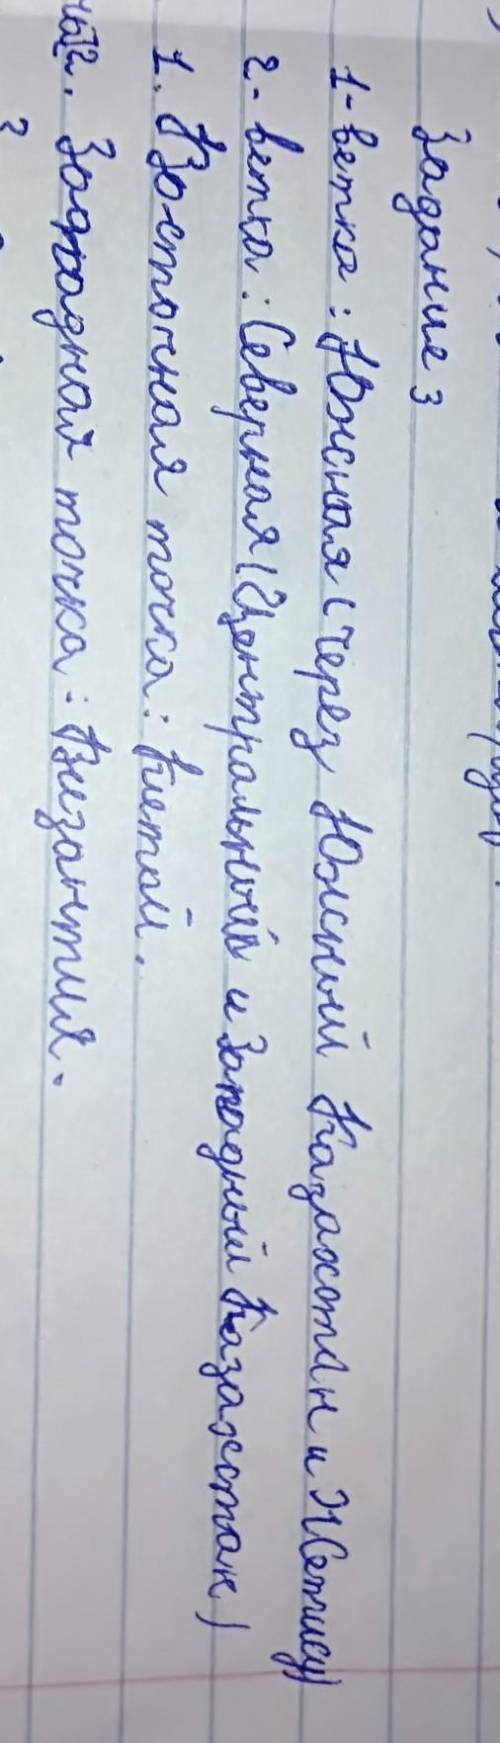 Задание 3
1-ветка: Южная (через Южный Казахстан и Жетису)
2-ветка: Северная (Центральный и Западный Казахстан)
1. Восточная точка: Китай.
2. Западная точка: Византия.